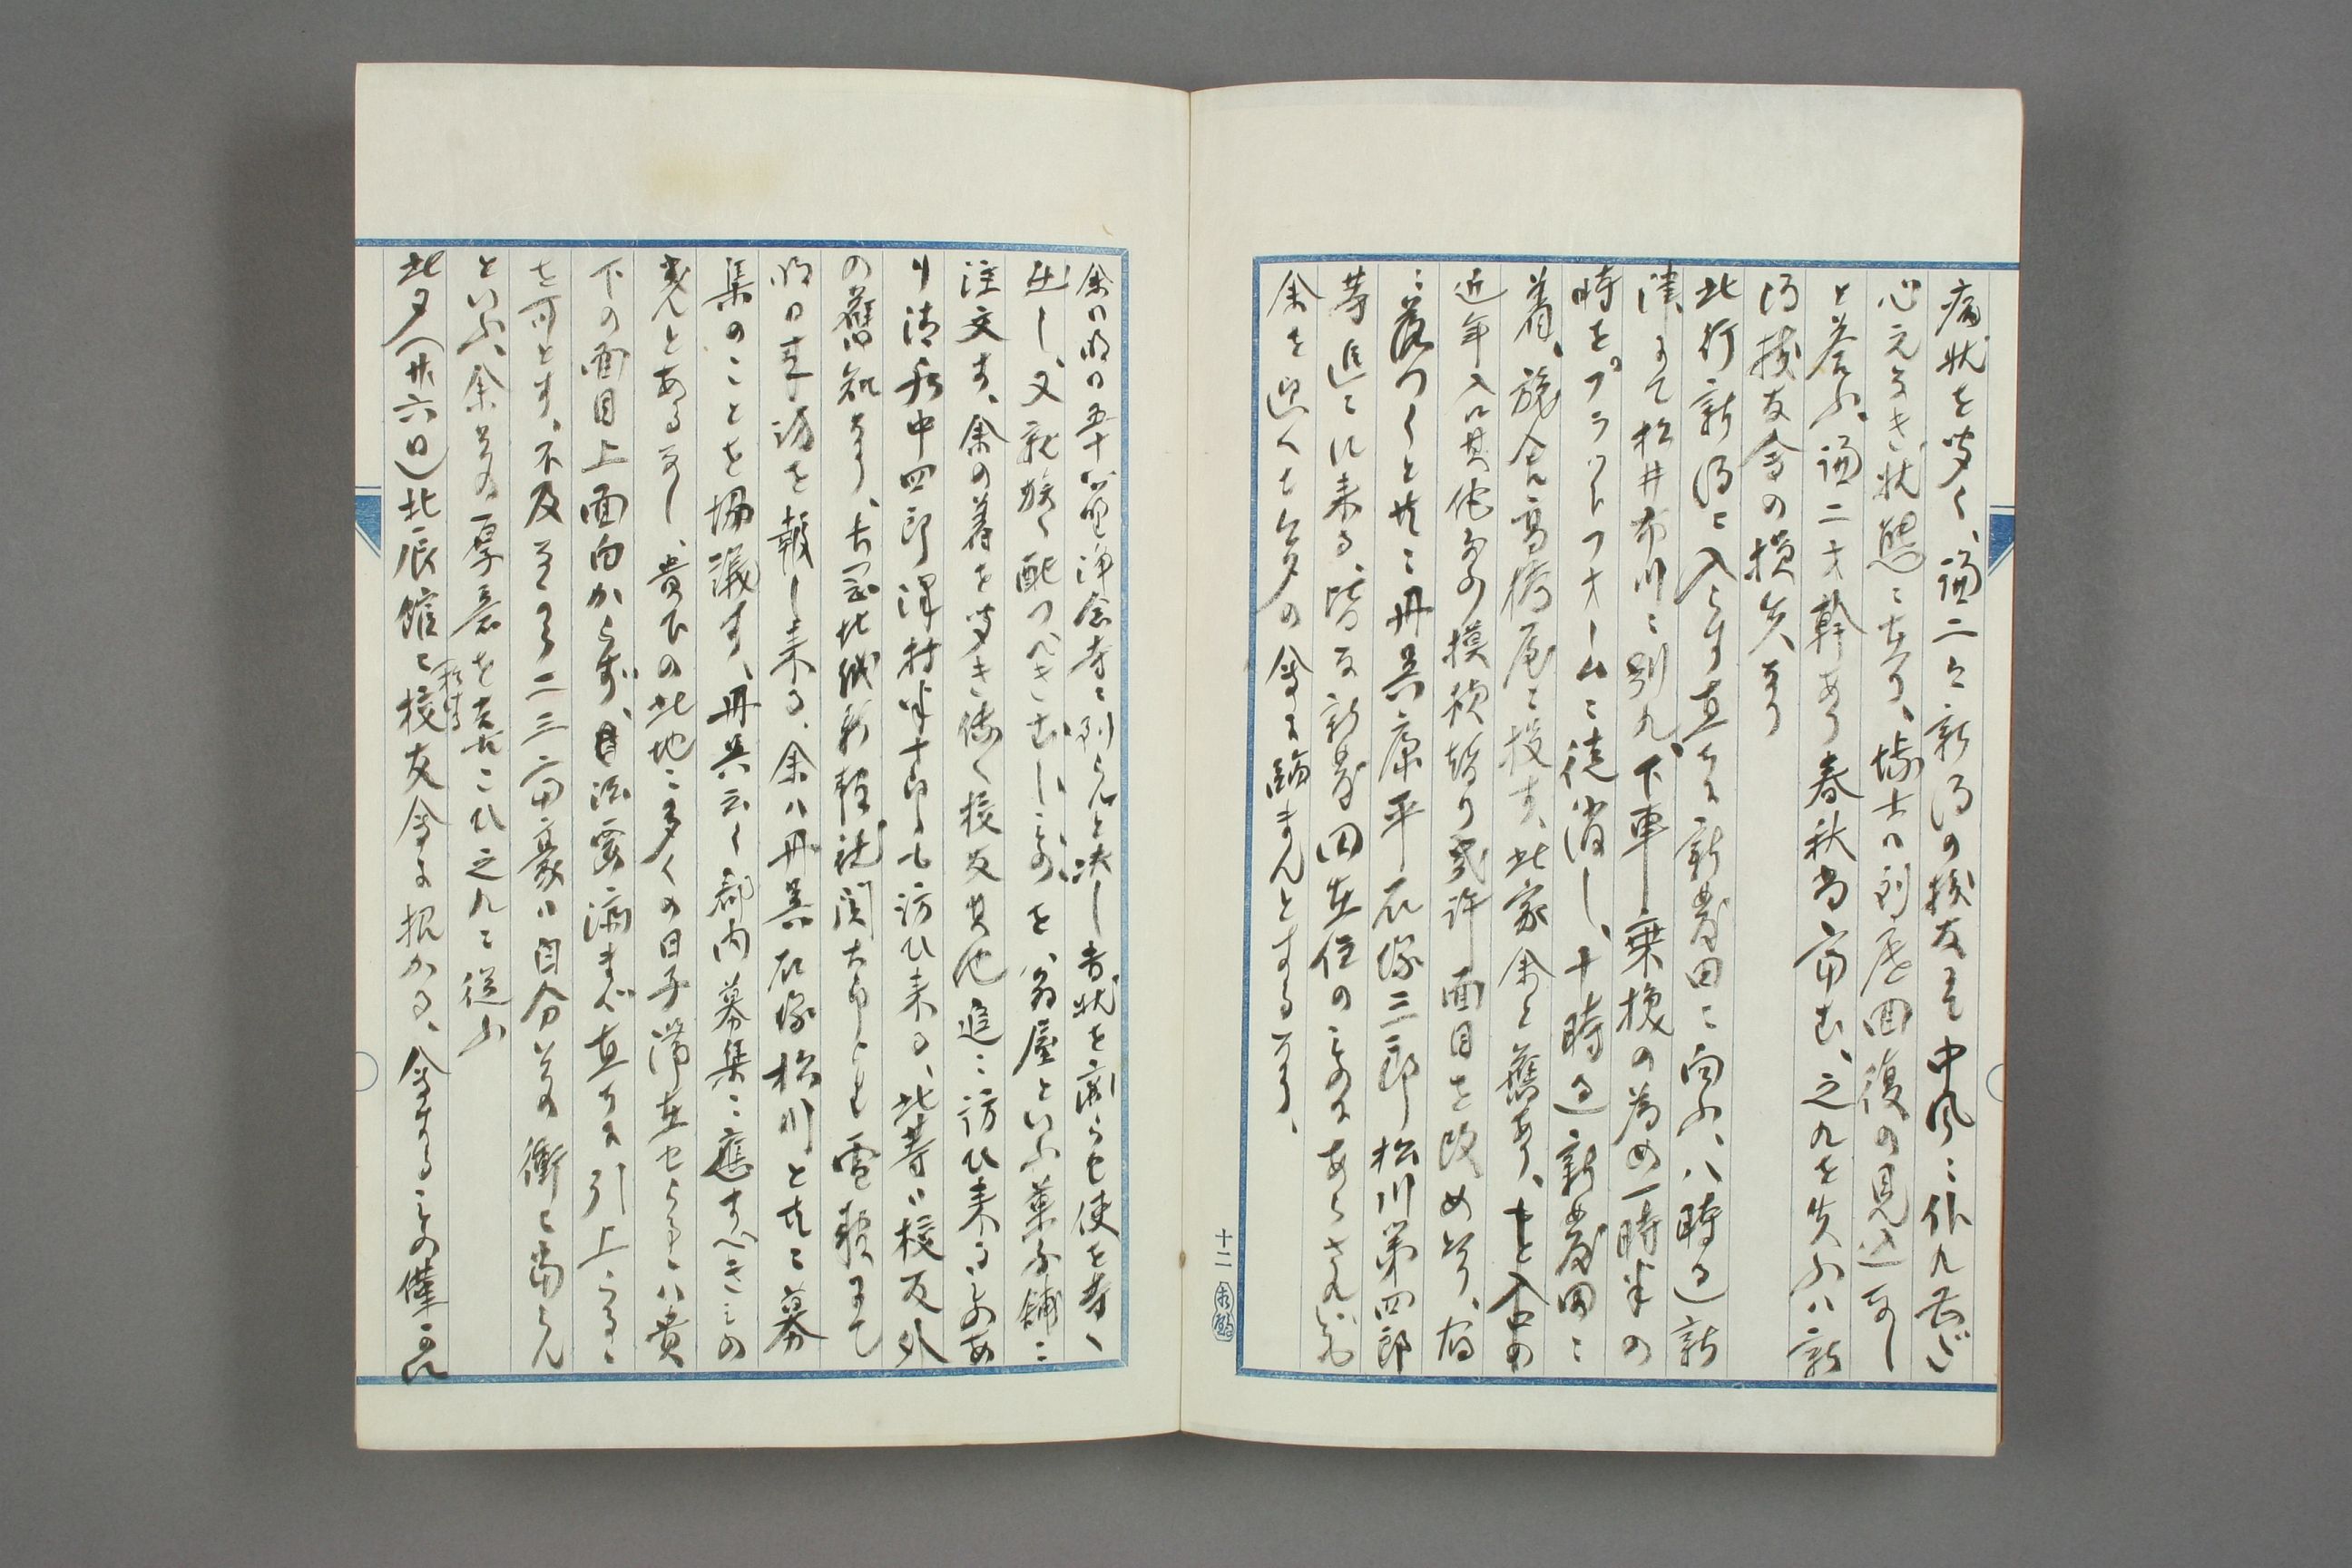 病状を聞く、酒二ハ新潟の校友にて中風に作れ甚だ
心元なき状態に在り、博士ハ到底回復の見込なし
と答ふ、酒二才幹あり春秋尚富む、之れを失ふハ新
潟校友会の損失なり
此行新潟に入らす直ちに新発田に向ふ、八時過新
津にて松井市川に別れ、下車し乗換の為め一時半の
時をプラットフオームに徒消し、十時過新発田に
着、旅舎高橋屋に投す、此家余と舊あり、
近年入口其他多少模様替り幾許面目を改め居り、宿
に落つくと共に丹呉康平石塚三郎松川第四郎
等進々に来る、皆な新発田在住の者にあらされども
余を迎へ今夕の会に臨まんとするなり、
余ハ明日五十公野浄念寺に到らんと決し書状を認らせ使を寺へ
出し、又親族へ配つへきむし物を翁屋といふ菓子舗に
注文す、余の着を聞き伝へ校友其他追々訪ひ来るものあ
り清和中四郎澤村半十郎も訪ひ来る、此等ハ校友外
の舊知なり、北越新報社関太郎よりも電報にて
明日来訪を報し来る、余ハ丹呉石塚松川と共に募
集のことを協議す、丹呉云く郡内募集に応すべきもの
幾んとあるなし、貴下の此地に多くの日子滞在せらるゝハ貴
下の面目上面白からず、法要済まば直ちに引上らるゝ
を可とす、不及乍ら二三富豪ハ自分等の衝に当らん
といふ、余等の厚意を喜ひ之れに従ふ
此夕（廿六日）北辰館に校友会を招かる、会するもの僅かに
十二